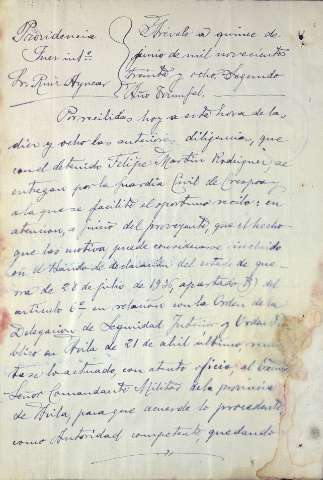 Providencia
Juez int.º
Sr. Ruiz Ayucar
Arévalo a quince de
junio de mil novecientos
treinta y ocho. Segundo
Año Triunfal.
Por recibidas hoy a esta hora de las
diez y ocho las anteriores diligencias, que
con el detenido Felipe Martín Rodríguez, se
entregan por la Guardia Civil de Crespos,
a la que se facilitó el oportuno recibo: en
atención, a juicio del proveyente, que el hecho
que las motiva puede considerarse incluido
en el Bando de declaración del estado de gue-
rra de 28 de julio de 1936, apartado B) del
artículo 6º en relación con la Orden de la
Delegación de Seguridad Interior y Orden Pú-
blico en Avila de 21 de abril último remí-
tase lo actuado, con atento oficio, al Excmo
Señor Comandante Militar de la provincia
de Avila, para que acuerde lo procedente
como Autoridad competente, quedando